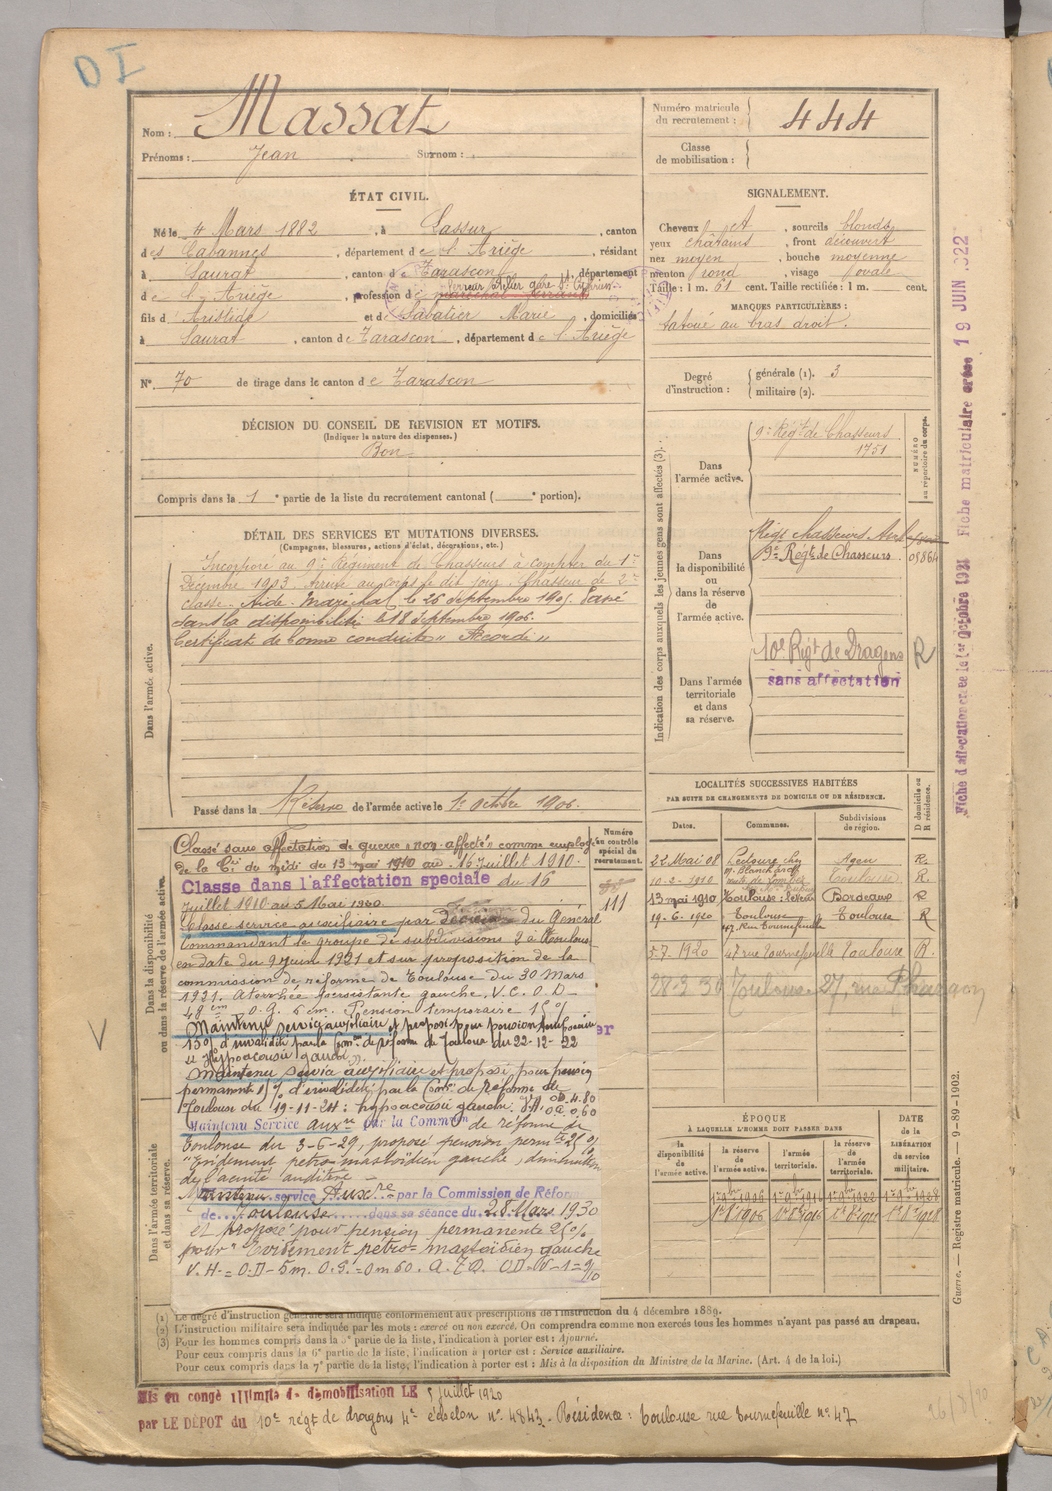 D I
Nom : Massat
Prénoms : Jean Surnom :
Numéro matricule du recrutement : 444
Classe de mobilisation :
ÉTAT CIVIL.
Né le 4 Mars 1882, à Lassur, canton
des Cabannes, département de l'Ariège, résidant
à Saurat, canton de Tarascon, département
de l'Ariège, profession de maréchal ferrant
fils d'Aristide et de Sabatier Marie, domiciliés
à Saurat, canton de Tarascon, département de l'Ariège
N° 70 de tirage dans le canton de Tarascon
DÉCISION DU CONSEIL DE REVISION ET MOTIFS.
(Indiquer la nature des dispenses.)
Bon
Compris dans la 1e partie de la liste du recrutement cantonal ( e portion).
SIGNALEMENT.
Cheveux et, sourcils blonds
yeux châtains, front découvert
nez moyen, bouche moyenne
menton rond, visage ovale
Taille : 1 m. 61 cent. Taille rectifiée : 1 m. cent.
MARQUES PARTICULIÈRES :
tatoué au bras droit.
Degré d'instruction : générale (1). 3
militaire (2).
DÉTAIL DES SERVICES ET MUTATIONS DIVERSES.
(Campagnes, blessures, actions d'éclat, décorations, etc.)
Dans l'armée active.
Incorporé au 9e Régiment de Chasseurs à compter du 1er
Décembre 1903. Arrivé au corps le dit jour. Chasseur de 2e
classe. Aide-Maréchal le 26 septembre 1905. Passé
dans la disponibilité le 18 septembre 1906.
Certificat de bonne conduite "Accordé"
Passé dans la Réserve de l'armée active le 1er Octobre 1906.
Indication des corps auxquels les jeunes gens sont affectés (3).
NUMÉRO au répertoire du corps.
Dans l'armée active.
9e Régt de Chasseurs
1751
Dans la disponibilité ou dans la réserve de l'armée active.
9e Régt de Chasseurs
Dans l'armée territoriale et dans sa réserve.
10e Régt de Dragons R
sans affectation
LOCALITÉS SUCCESSIVES HABITÉES
PAR SUITE DE CHANGEMENTS DE DOMICILE OU DE RÉSIDENCE.
Dates. Communes. Subdivisions de région. D domicile ou R résidence.
22 Mai 08 Lectoure Agen R.
10-2-1910 Toulouse R.
13 mai 1910 Bordeaux R
19-6-1920 Toulouse 47, Rue Tournefeuille Toulouse R
5.7.1920 47 rue Tournefeuille Toulouse R.
28-3 30 Toulouse 27, rue
Dans la disponibilité ou dans la réserve de l'armée active.
Numéro au contrôle spécial du recrutement.
111
Classé sans affectation de guerre "non affecté" comme employé
de la Cie du midi du 13 mai 1910 au 16 juillet 1910.
Classe dans l'affectation speciale du 16
Juillet 1910 au 5 Mai 1920.
Classé service auxiliaire par Décision du Général
Commandant le groupe de subdivisions 2 à Toulouse
en date du 9 juin 1921 et sur proposition de la
commission de réforme de Toulouse du 30 Mars
1921. Otorrhée persistante gauche. V.C. O.D.
48 cm O.G. 6 cm. Pension temporaire 15%
Maintenu service auxiliaire et proposé pour pension
15% d'invalidité par la Comon de réforme de Toulouse du 22-12-22
Hypoacousie gauche
Maintenu service auxiliaire et proposé pour pension
permanente % d'invalidité par la Comon de réforme de
Toulouse du 19-11-24 : hypoacousie gauche. OD 4.80
0,60
Maintenu Service auxre par la Common de réforme de
Toulouse du 3-6-29, proposé pension permte 25%
"Evidement petro-mastoïdien gauche, diminution
de l'acuité auditive
Maintenu service Auxre par la Commission de Réfor
de Toulouse dans sa séance du 28 Mars 1930
et proposé pour pension permanente 25%
pour "Evidement petro-mastoïdien gauche
V.H. = O.D - 5m. O.G. = 0m60.
Dans l'armée territoriale et dans sa réserve.
ÉPOQUE
À LAQUELLE L'HOMME DOIT PASSER DANS
la disponibilité de l'armée active. la réserve de l'armée active. l'armée territoriale. la réserve de l'armée territoriale.
DATE de la LIBÉRATION du service militaire.
(1) Le degré d'instruction générale sera indiqué conformément aux prescriptions de l'instruction du 4 décembre 1889.
(2) L'instruction militaire sera indiquée par les mots : exercé ou non exercé. On comprendra comme non exercés tous les hommes n'ayant pas passé au drapeau.
(3) Pour les hommes compris dans la 5e partie de la liste, l'indication à porter est : Ajourné.
Pour ceux compris dans la 6e partie de la liste, l'indication à porter est : Service auxiliaire.
Pour ceux compris dans la 7e partie de la liste, l'indication à porter est : Mis à la disposition du Ministre de la Marine. (Art. 4 de la loi.)
Mis en congé illimité de démobilisation LE 5 juillet 1920
par LE DÉPOT du 10e régt de dragons 4e échelon n° 4843. Résidence : Toulouse rue Tournefeuille n° 47
Fiche d'affectation créée le 1er Octobre 1921 Fiche matriculaire créée 19 JUIN 1922
Guerre. — Registre matricule. — 9-89-1902.
V